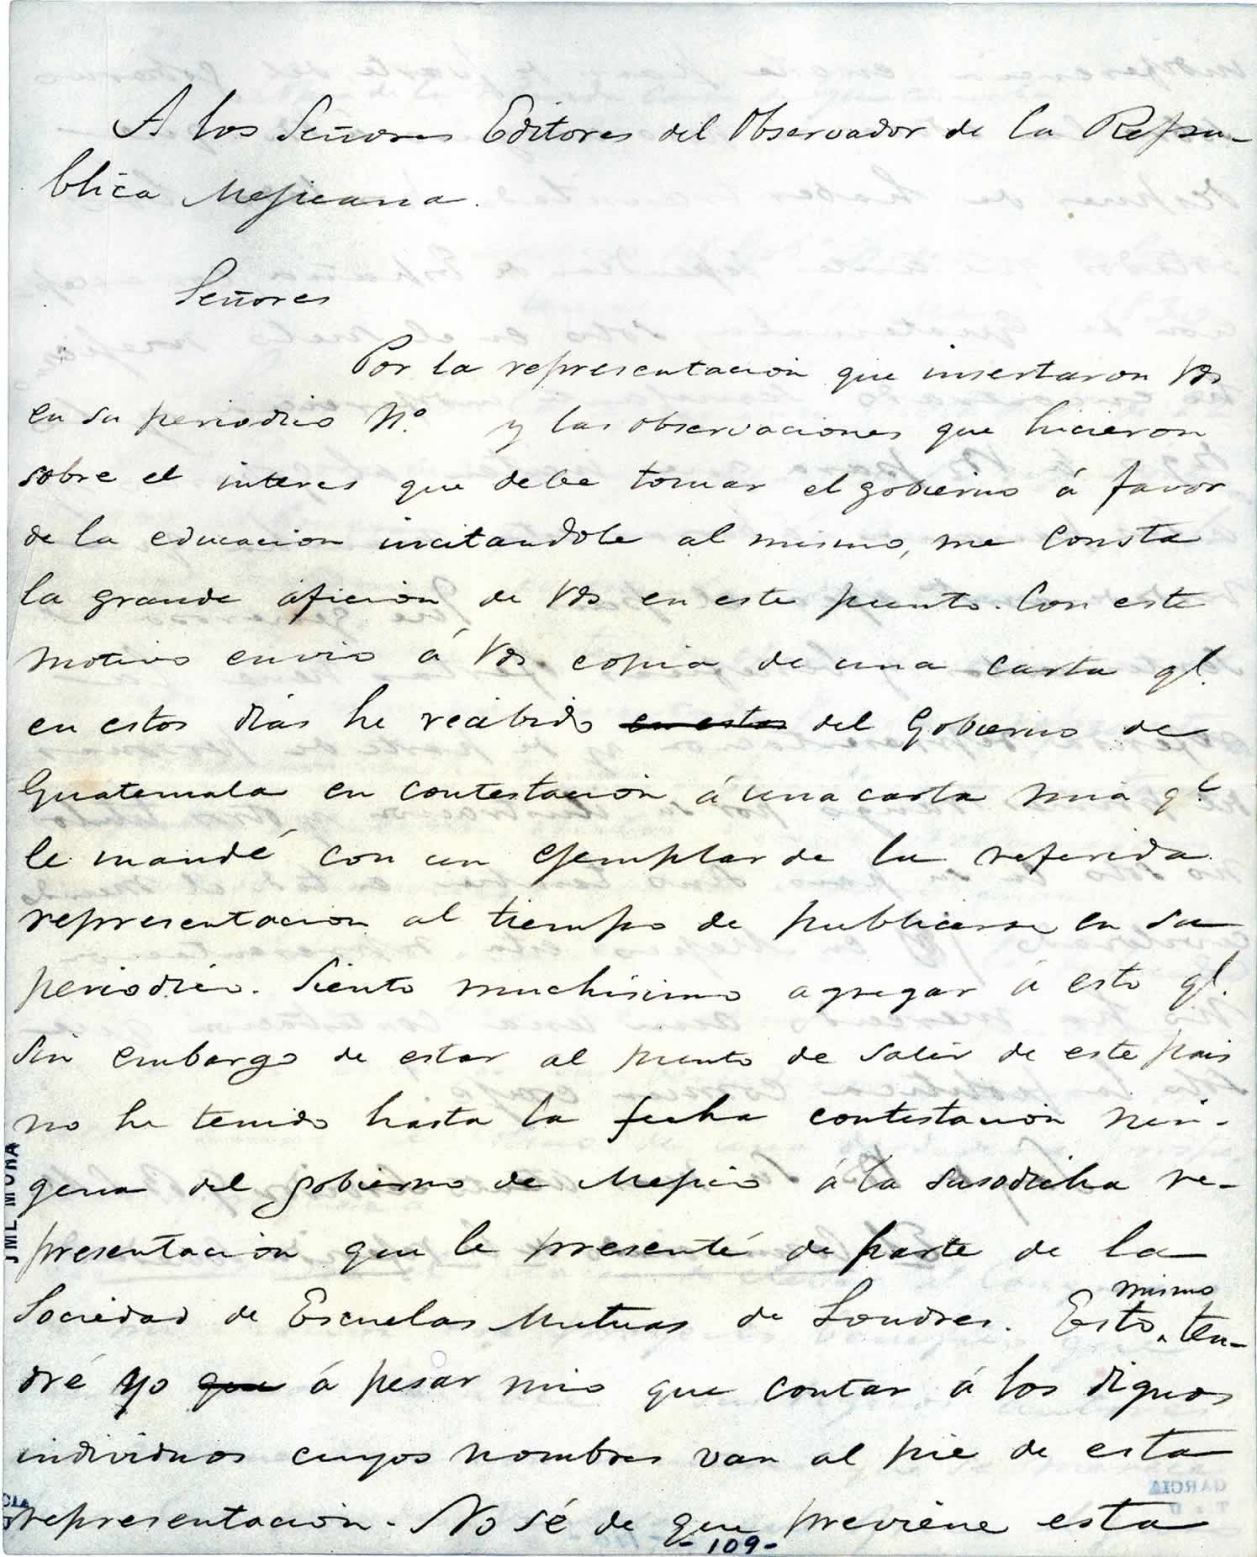 A los Señores Editores del Observador de la Repu-
blica Mejicana.
Señores
Por la representacion que insertaron Vds
en su periodico Nº. y las observaciones que hicieron
sobre el interes que debe tomar el gobierno á favor
de la educacion incitandole al mismo, me consta
la grande aficion de Vds en este punto. Con este
motivo envio á Vds. copia de una carta qe.
en estos dias he recibido en estos del Gobierno de
Guatemala en contestacion á una carta mia qe
le mandé con un ejemplar de la referida
representacion al tiempo de publicarse en su
periodico. Siento muchisimo agregar á esto qe.
sin embargo de estar al punto de salir de este pais
no he tenido hasta la fecha contestacion nin-
guna del gobierno de Mejico á la susodicha re-
presentacion que le presenté de parte de la
Sociedad de Escuelas Mutuas de Londres. Esto mismo ten-
dré yo que á pesar mio que contar á los dignos
individuos cuyos nombres van al pie de esta
representacion. No sé de que previene esta
-109-
JML MORA
GARCIA